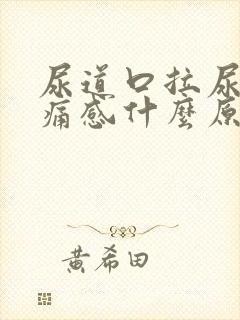 尿道口拉尿
痛感什麼原
黄希田